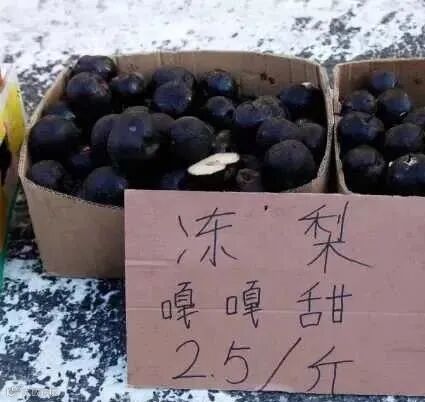 冻梨
嘎嘎甜
2.5/斤